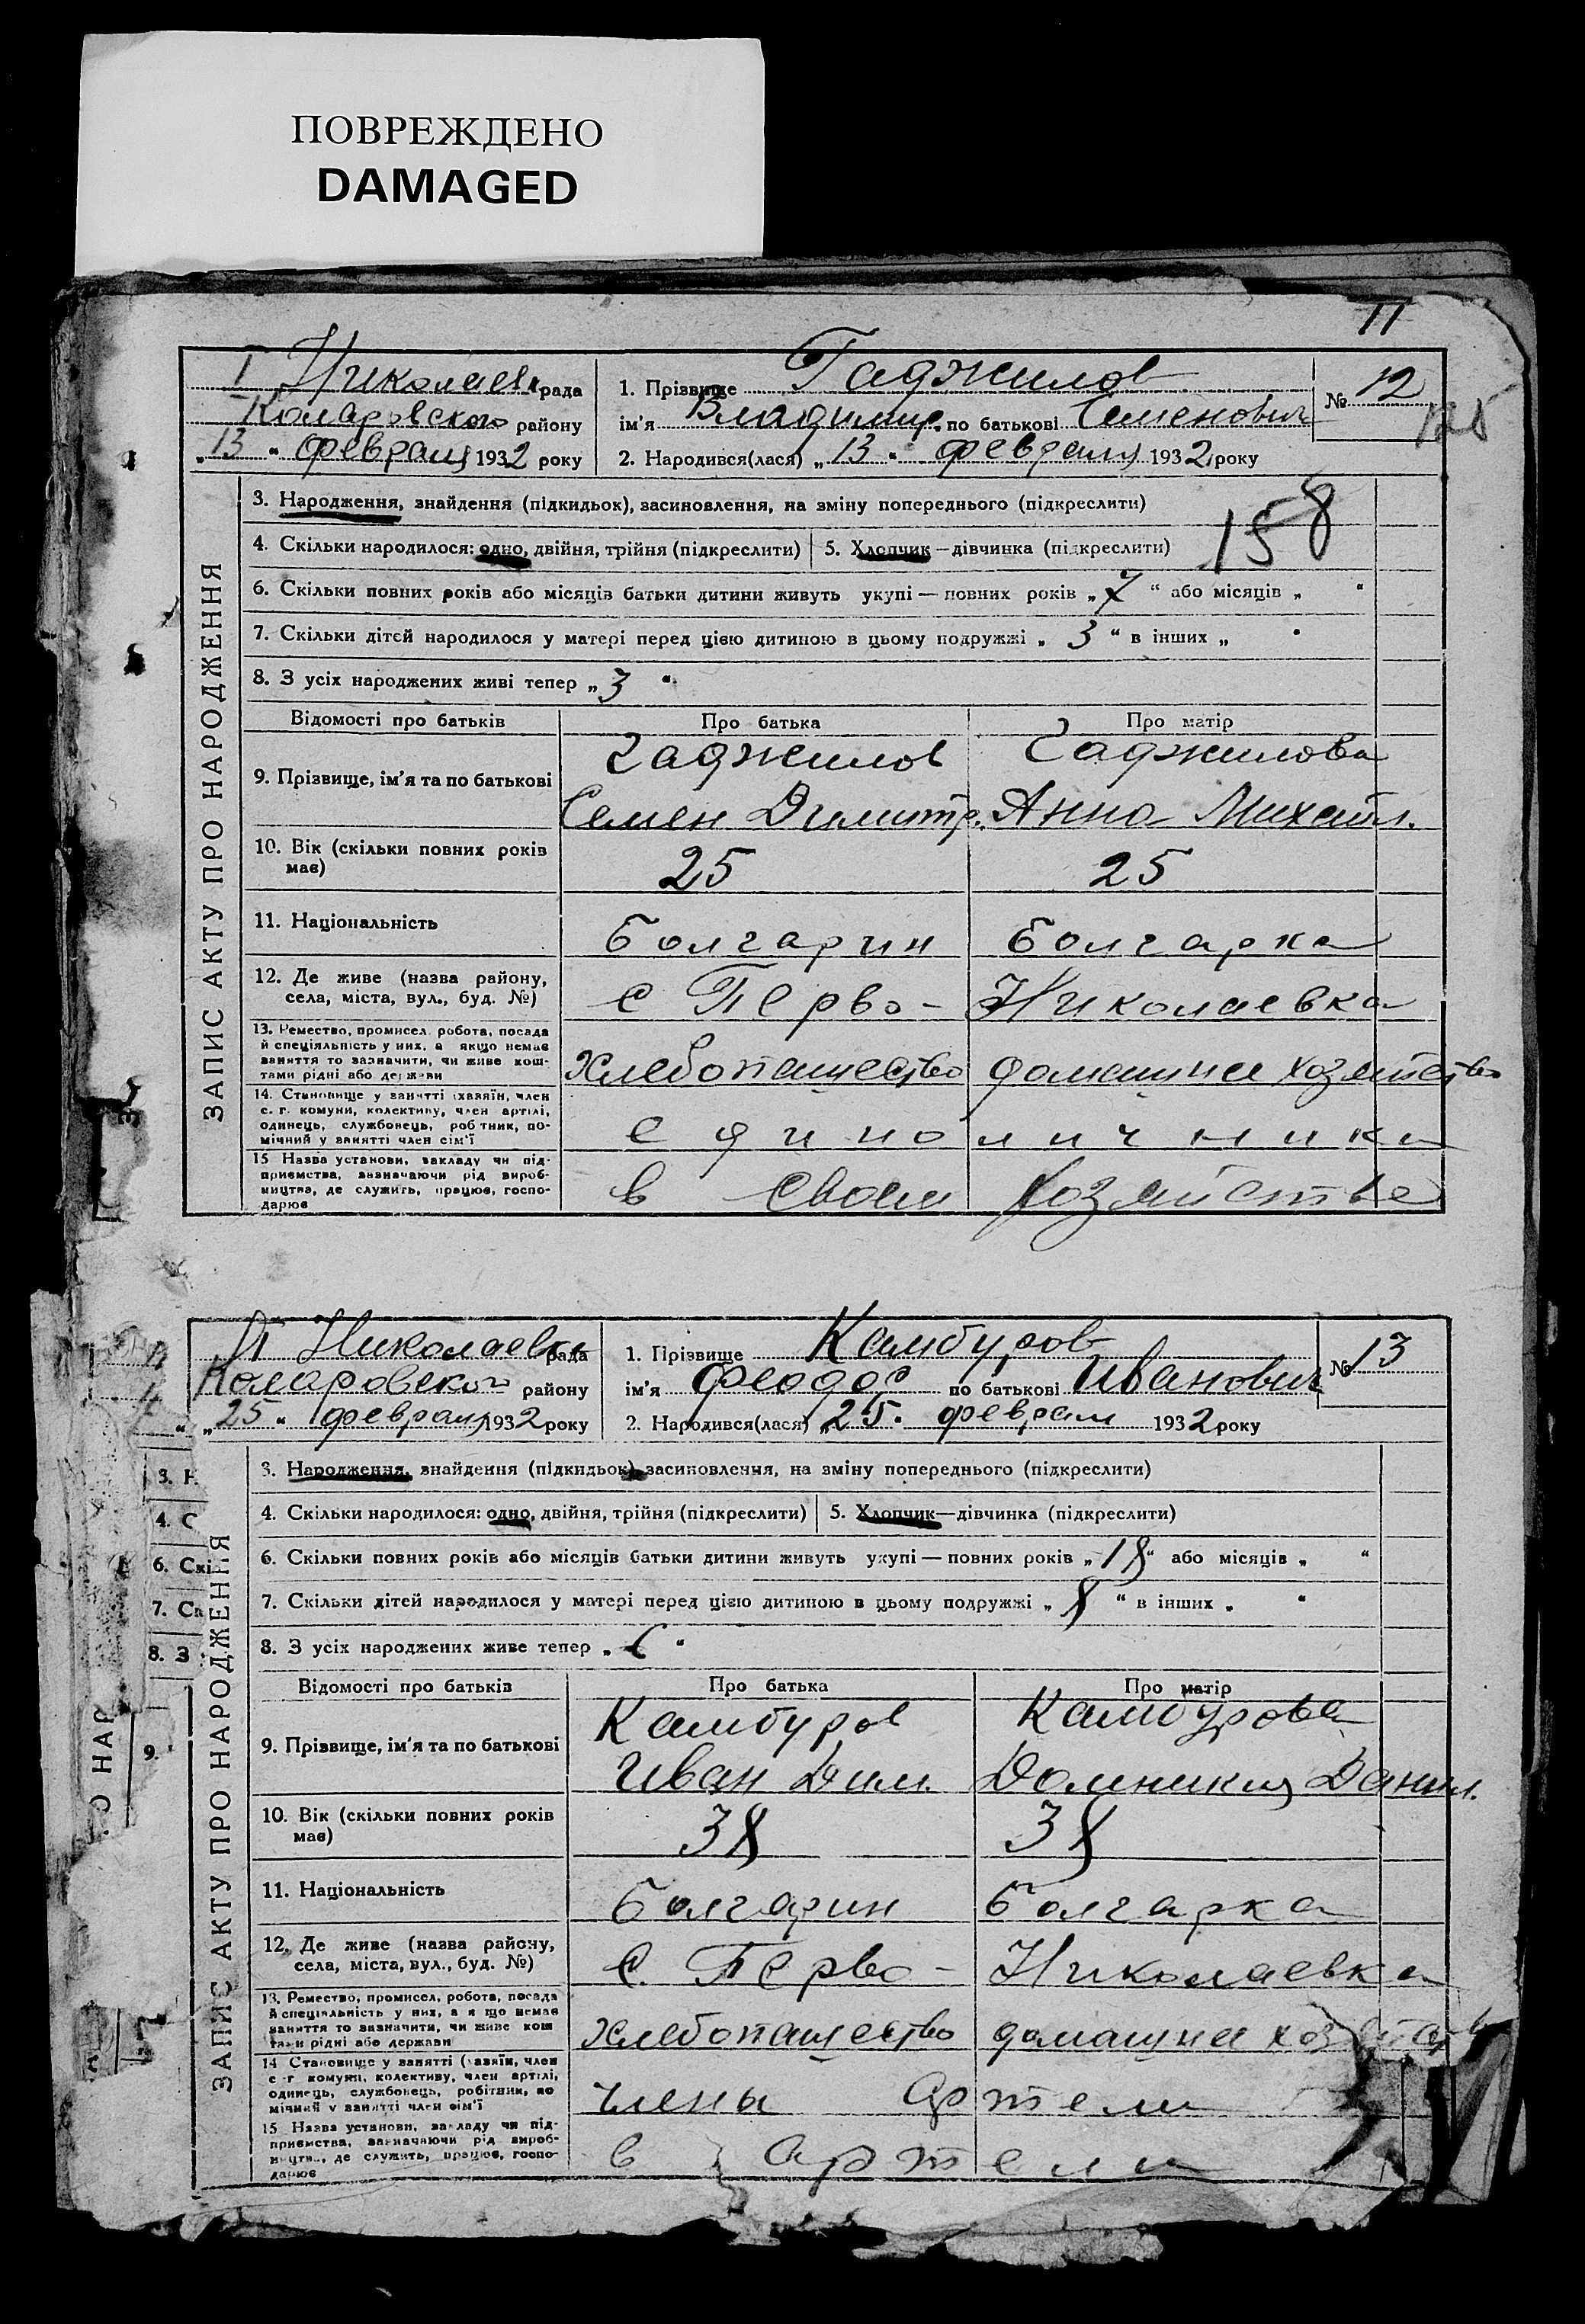 ПОВРЕЖДЕНО
DAMAGED
11
I Николаевк рада
Коларовского району
„13“ февраля 1932 року
1. Прізвище Гаджилов
ім'я Владимир. по батькові Семенович
2. Народився(лася) „13“ февраля 1932 року
№ 12
125
ЗАПИС АКТУ ПРО НАРОДЖЕННЯ
3. Народження, знайдення (підкидьок), засиновлення, на зміну попереднього (підкреслити)
158
4. Скільки народилося: одно, двійня, трійня (підкреслити) 5. Хлопчик—дівчинка (підкреслити)
6. Скільки повних років або місяців батьки дитини живуть укупі — повних років „7“ або місяців „ “
7. Скільки дітей народилося у матері перед цією дитиною в цьому подружжі „3“ в інших „ “
8. З усіх народжених живі тепер „3“
Відомості про батьків Про батька Про матір
9. Прізвище, ім'я та по батькові Гаджилов Гаджилова
Семен Димитр. Анна Михайл.
10. Вік (скільки повних років має) 25 25
11. Національність Болгарин Болгарка
12. Де живе (назва району, села, міста, вул., буд. №) с Перво- Николаевка
13. Ремество, промисел, робота, посада
й спеціяльність у них, а якщо немає
заняття то зазначити, чи живе кош-
тами рідні або держави
Хлебопашество домашнее хозяйство
14. Становище у занятті (хазяїн, член
с. г. комуни, колективу, член артілі,
одинець, службовець, робітник, по-
мічний у занятті член сім'ї
единоличники
15 Назва установи, закладу чи під-
приємства, визначаючи рід вироб-
ництва, де служить, працює, госпо-
дарює
в своем хозяйстве
II Николаевк рада
Коларовского району
„25“ февраля 1932 року
1. Прізвище Камбуров
ім'я Феодос по батькові Иванович
2. Народився(лася) „25“ февраля 1932 року
№ 13
ЗАПИС АКТУ ПРО НАРОДЖЕННЯ
3. Народження, знайдення (підкидьок), засиновлення, на зміну попереднього (підкреслити)
4. Скільки народилося: одно, двійня, трійня (підкреслити) 5. Хлопчик—дівчинка (підкреслити)
6. Скільки повних років або місяців батьки дитини живуть укупі — повних років „18“ або місяців „ “
7. Скільки дітей народилося у матері перед цією дитиною в цьому подружжі „8“ в інших „ “
8. З усіх народжених живе тепер „6“
Відомості про батьків Про батька Про матір
9. Прізвище, ім'я та по батькові Камбуров Камбурова
Иван Дим. Домникия Данил.
10. Вік (скільки повних років має) 38 38
11. Національність Болгарин Болгарка
12. Де живе (назва району, села, міста, вул., буд. №) с. Перво- Николаевка
13. Ремество, промисел, робота, посада
й спеціяльність у них, а якщо немає
заняття то зазначити, чи живе кош
тами рідні або держави
Хлебопашество домашнее хозяйство
14 Становище у занятті (хазяїн, член
с-г комуни, колективу, член артілі,
одинець, службовець, робітник, по
мічний у занятті член сім'ї
члены артели
15 Назва установи, закладу чи під-
приємства, зазначаючи рід вироб-
ництва, де служить, працює, госпо-
дарює
в артели
3. Н
4. С
6. Скі
7. Ск
8. З
9.
О НАР